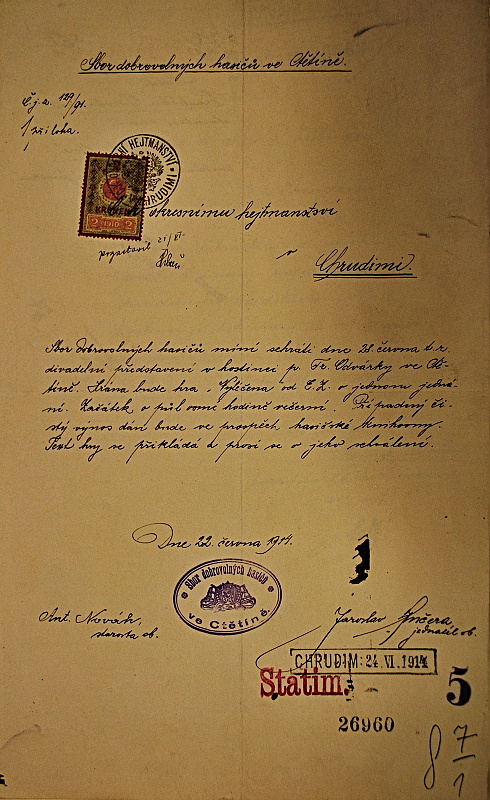 Sbor dobrovolných hasičů ve Ctětíně.
Č.j.a. 127/91.
1 příloha.
NÍ HEJTMANSTVÍ
CHRUDIMI
2 1910 2
okresnímu hejtmanství
v
Chrudimi.
Sbor dobrovolných hasičů míní sehráti dne 28. června t.r.
divadelní představení v hostinci p. Fr. Odvárky ve Ctě-
tíně. Hrána bude hra „Vyléčena od E. Z. o jednom jedná-
ní. Začátek o půl osmé hodině večerní. Případný či-
stý výnos dán bude ve prospěch hasičské knihovny.
Text hry se přikládá a prosí se o jeho schválení.
Dne 22. června 1914.
Sbor dobrovolných hasičů
ve Ctětíně.
Ant. Novák,
starosta sb.
Jaroslav
jednatel sb.
CHRUDIM: 24. VI. 1914
Statim.
5
26960
8 7/1